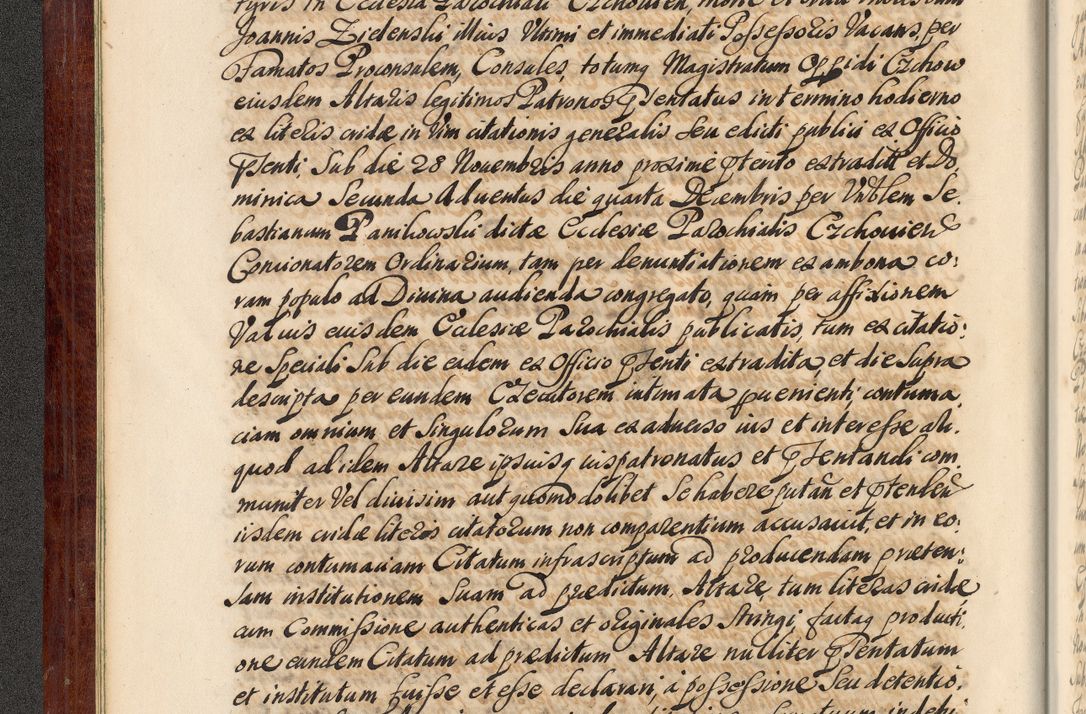 tyris in Ecclesia Parochiali Czchovien, morte et obitu
Joannis Zielenski illius Ultimi et immediati Possessoris Vacans, per
Famatos Proconsulem, Consules, totumq Magistratum Oppidi Czchow
eiusdem Altaris legitimos Patronos pntatus in termino hodierno
ex literis cridæ in Vim citationis generalis seu edicti publici ex Officio
psenti, Sub die 28 Novembris anno proxime pterito extradit et Do,
minica Secunda Adventus die quarta Decembris per Vnblem Se,
bastianum Panikowski dictæ Ecclesiæ Parochialis Czchovien
Concionatorem Ordinarium, tam per denuntiationem ex ambona co:
ram populo ad Divina audienda congregato, quam per affixionem
Valvis eiusdem Ecclesiæ Parochialis publicatis, tum ex citatio:
ne Speciali Sub die eadem ex Officio psenti extradita, et die supra
descripta per eundem Executorem intimata pvenienti, contuma,
ciam omnium et Singulorum Sua ex adverso ius et interesse ali,
quod ad idem Altare ipsiusq iuspatronatus et psentandi com,
muniter Vel divisim aut quomodolibet Se habere putan et ptenden
iisdem cridæ literis citatorum non comparentium accusavit, et in eo:
rum contumaciam Citatum infrascriptum ad producendam præten:
sam institutionem Suam ad prædictum Altare, tum literas cridæ
cum Commissione authenticas et originales Stringi, factaq producti,
one eundem Citatum ad prædictum Altare nulliter psentatum
et institutum fuisse et esse declarari, à possessione Seu detentio,